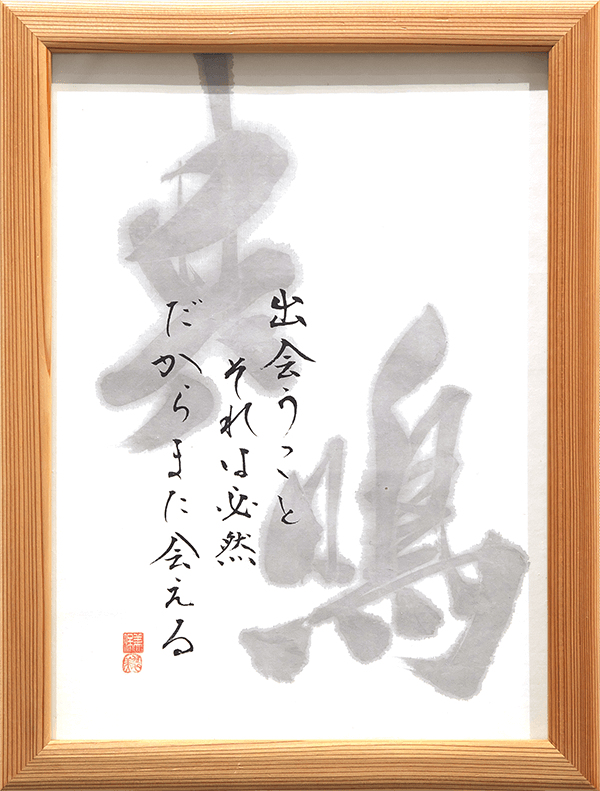 鳴
出会うこと
それは必然
だからまた会える